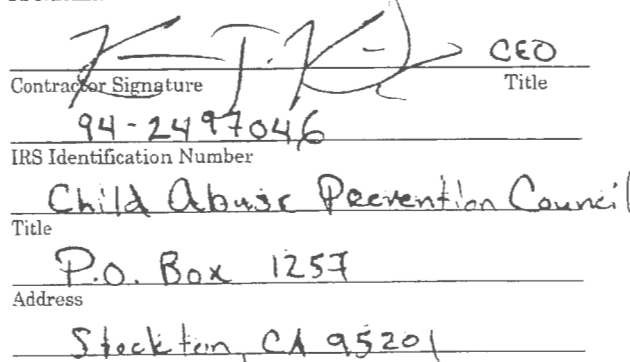 CEO
Contractor Signature Title
94-2497046
IRS Identification Number
Child Abuse Prevention Council
Title
P.O. Box 1257
Address
Stockton, CA 95201